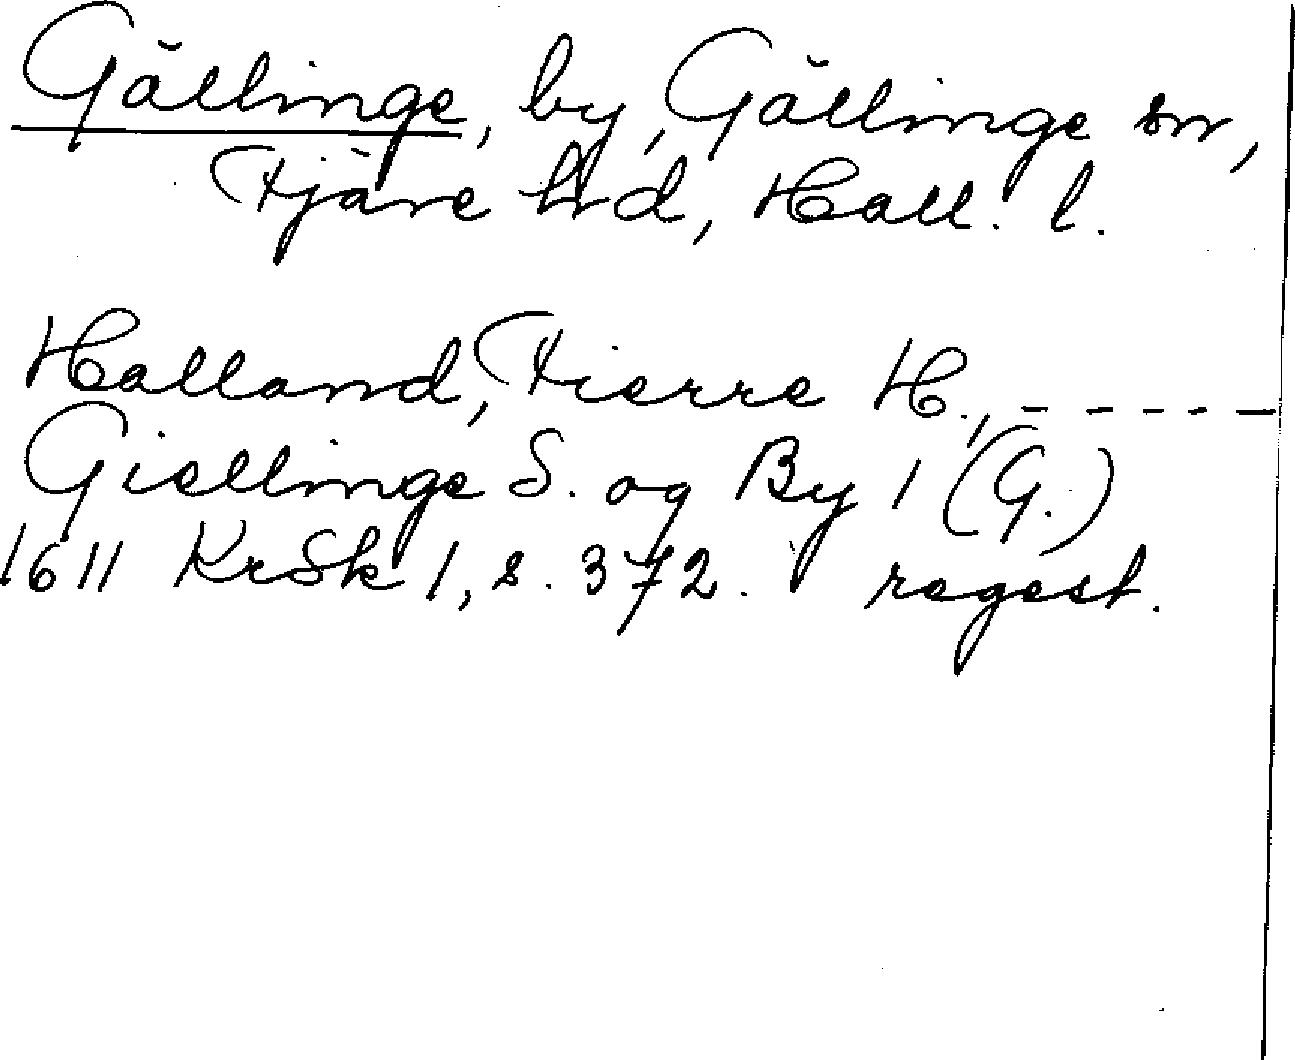 Gällinge, by, Gällinge sn,
Fjäre hd, Hall. l.
Halland, Fierre H., - - - - -
Giellinge S. og By 1 (G.)
1611 KrSk 1, s. 372. regest.